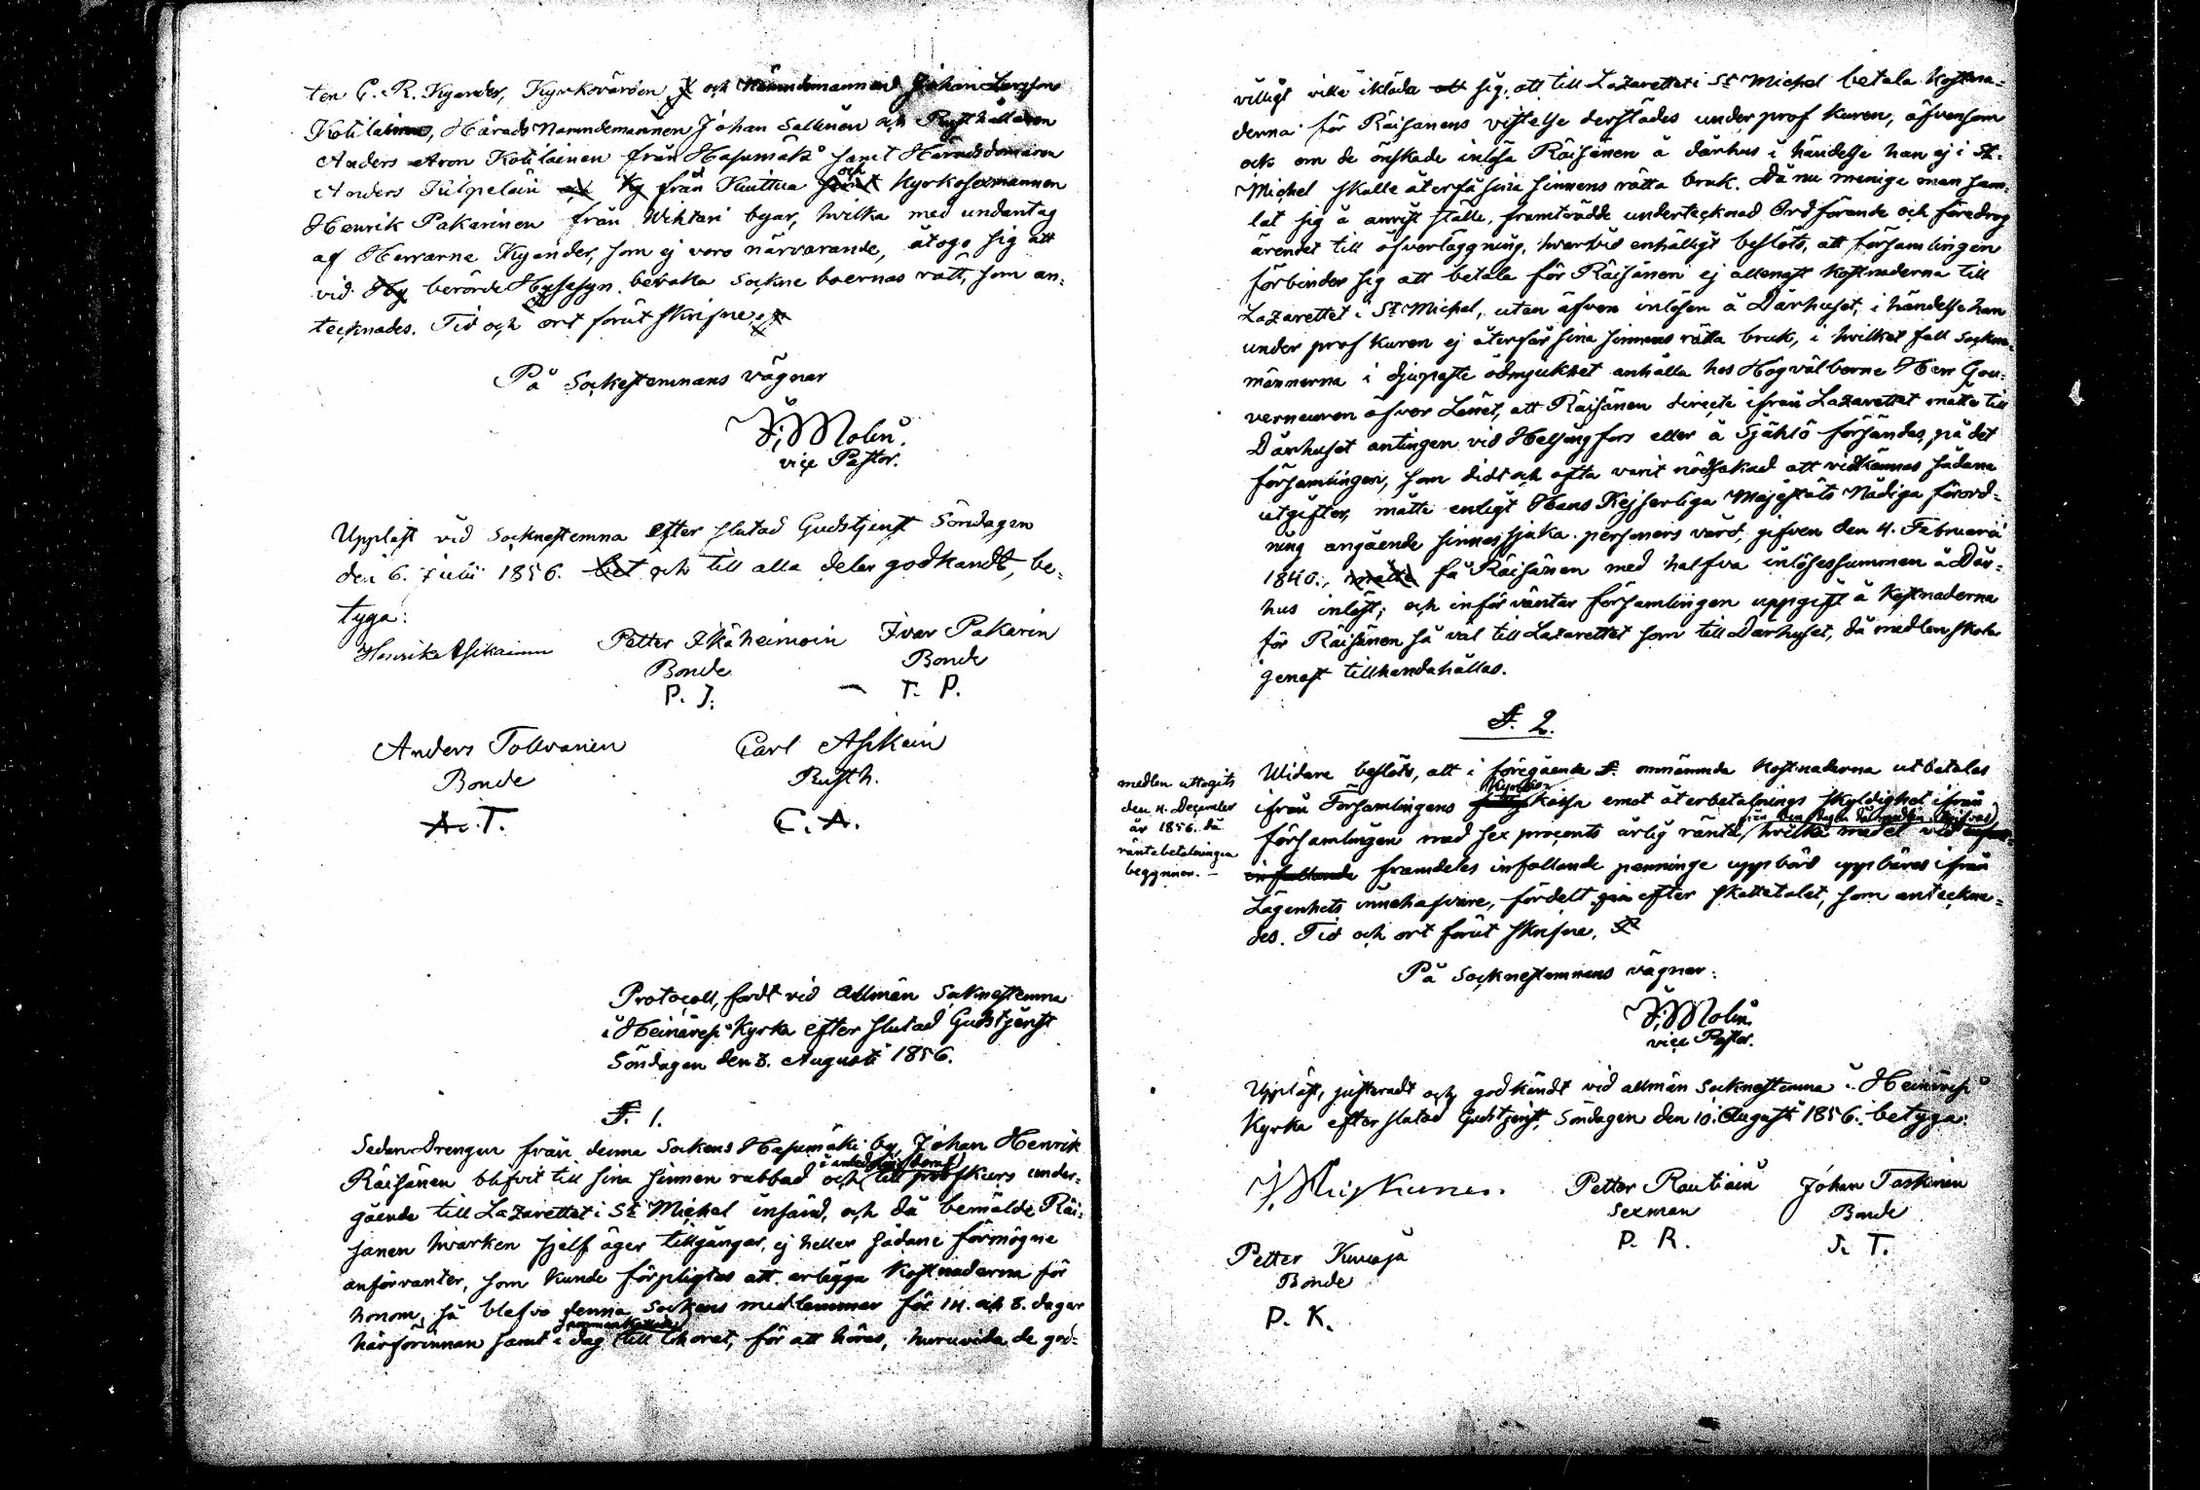 ten C. R. Kyander, Kyrkovärden och Nämndemannen Johan Larsson
Kotilainen, Härads Nämndemannen Johan Salinen och Rusthållaren
Anders Aron Kotilainen från Hasumäki samt Häradsdomaren
Anders Pulpelein från Kuittua och Kyrkosexmannen
Henrik Pakarinen från Wihtari byar, hvilka med undantag
af Herrarne Kyander, som ej voro närvarande, åtogo sig att
vid berörde Husesyn bevaka Sockneboernas rätt, som an-
tecknades. Tid och ort förut skrifne.
På Sockestemnans vägnar
J. Molin.
vice Pastor.
Uppläst vid Socknestemna efter slutad Gudstjenst Söndagen
den 6. Julii 1856. och till alla delar godkändt, be-
tyga:
Henrik Asikainen Petter Ikäheimoin Ivar Pakarin
Bonde Bonde
P. I. — I. P.
Anders Tolvanen Carl Asikain
Bonde Rusth.
A. T. C. A.
Protocoll, fördt vid Allmän Socknestemna
i Heinävesi Kyrka efter slutad Gudstjenst
Söndagen den 3. Augusti 1856.
§. 1.
Sedan Drengen från denna Sockens Hasumäki by, Johan Henrik
Räisänen blifvit till sina sinnen rubbad och till profkurs under-
gående till Lazarettet i St Michel insänd, och då bemälde Räi-
sänen hvarken sjelf äger tillgångar, ej heller sådane förmögne
anförvanter, som kunde förpligtas att erlägga kostnaderna för
honom, så blefvo denna Sockens medlemmar för 14. och 8. dagar
härförinnan samt i dag sammankallade till Choret, för att höras, huruvida de god-
villigt ville ikläda sig, att till Lazarettet i St Michel betala kostna-
derna för Räisänens vistelse derstädes under prof kuren, äfvensom
ock om de önskade inlösa Räisänen å dårhus i händelse han ej i St.
Michel skulle återfå sina sinnens rätta bruk. Då nu menige man sam-
lat sig å anvist ställe, framträdde undertecknad Ordförande och föredrog
ärendet till öfverläggning, hvarvid enhälligt beslöts, att församlingen
förbinder sig att betala för Räisänen ej allenast kostnaderna till
Lazarettet i St Michel, utan äfven inlösen å Dårhuset, i händelse han
under prof kuren ej återfår sina sinnens rätta bruk, i hvilket fall Sockne-
männerna i djupaste ödmjukhet anhålla hos Högvälborne Herr Gou-
verneuren öfver Länet, att Räisänen directe ifrån Lazarettet måtte till
Dårhuset antingen vid Helsingfors eller å Själö försändas, på det
församlingen, som titt och ofta varit nödsakad att vidkännas sådana
utgifter, måtte enligt Hans Kejserliga Majestäts Nådiga förord-
ning angående sinnessjuka personers vård, gifven den 4. Februarii
1840., få Räisänen med halfva inlösessumman å Dår-
hus inlöst; och inför väntar församlingen uppgift å kostnaderna
för Räisänen så väl till Lazarettet som till Dårhuset, då medlen skola
genast tillhandahållas.
§. 2.
Widare beslöts, att i föregående §. omnämnda kostnaderna utbetalas
ifrån Församlingens Kyrko kassa emot återbetalnings skyldighet ifrån
församlingen med sex procents årlig ränta, hvilka medel vid
framdeles infallande penninge uppbörd uppbäras ifrån
Lägenhets innehafvare, fördelt efter skattetalet, som anteckna-
des. Tid och ort förut skrifne.
medlen uttagits
den 4. December
år 1856. då
räntebetalningen
begynner. —
På Socknestemnans vägnar:
J. Molin.
vice Pastor.
Uppläst, justeradt och godkändt vid allmän Socknestemna i Heinävesi
Kyrka efter slutad Gudstjenst, Söndagen den 10. Augusti 1856. betyga:
Petter Rautiain Johan Taskinen
Sexman Bonde
P. R. J. T.
Petter Kuvaja
Bonde
P. K.